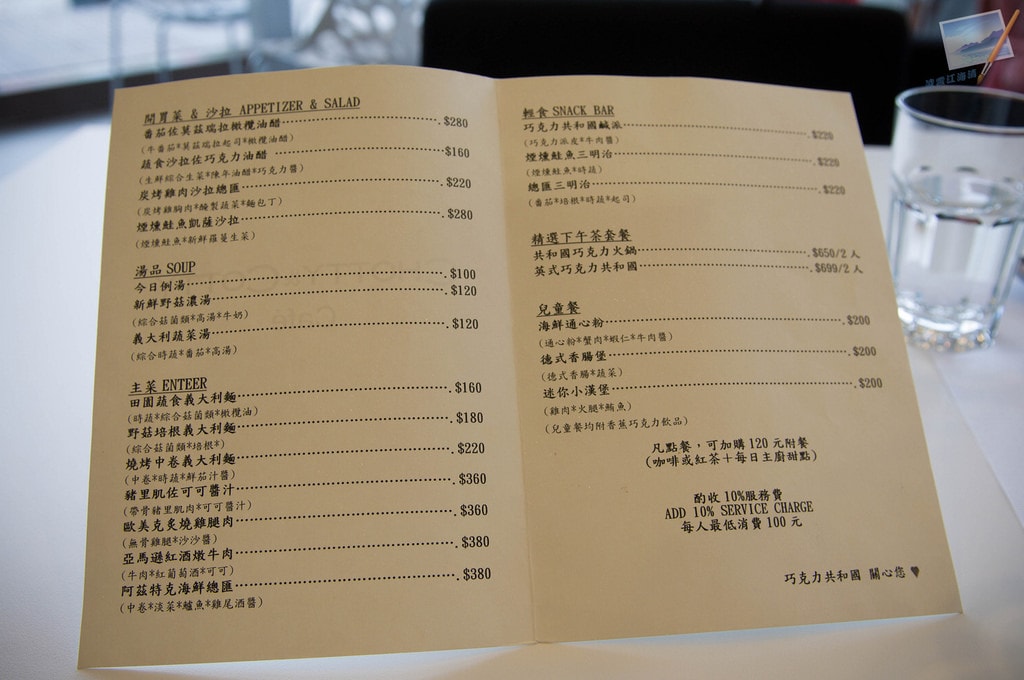 開胃菜 & 沙拉 APPETIZER & SALAD
番茄佐莫茲瑞拉橄欖油醋 $280
(牛番茄*莫茲瑞拉起司*橄欖油醋)
蔬食沙拉佐巧克力油醋 $160
(生鮮綜合生菜*陳年油醋*巧克力醬)
炭烤雞肉沙拉總匯 $220
(炭烤雞胸肉*醃製蔬菜*麵包丁)
煙燻鮭魚凱薩沙拉 $280
(煙燻鮭魚*新鮮羅蔓生菜)
湯品 SOUP
今日例湯 $100
新鮮野菇濃湯 $120
(綜合菇菌類*高湯*牛奶)
義大利蔬菜湯 $120
(綜合時蔬*番茄*高湯)
主菜 ENTEER
田園蔬食義大利麵 $160
(時蔬*綜合菇菌類*橄欖油)
野菇培根義大利麵 $180
(綜合菇菌類*培根*)
燒烤中卷義大利麵 $220
(中卷*時蔬*鮮茄汁醬)
豬里肌佐可可醬汁 $360
(帶骨豬里肌肉*可可醬汁)
歐美克炙燒雞腿肉 $360
(無骨雞腿*沙沙醬)
亞馬遜紅酒燉牛肉 $380
(牛肉*紅葡萄酒*可可)
阿茲特克海鮮總匯 $380
(中卷*淡菜*鱸魚*雞尾酒醬)
輕食 SNACK BAR
巧克力共和國鹹派 $220
(巧克力派皮*牛肉醬)
煙燻鮭魚三明治 $220
(煙燻鮭魚*時蔬)
總匯三明治 $220
(番茄*培根*時蔬*起司)
精選下午茶套餐
共和國巧克力火鍋 $650/2 人
英式巧克力共和國 $699/2 人
兒童餐
海鮮通心粉 $200
(通心粉*蟹肉*蝦仁*牛肉醬)
德式香腸堡 $200
(德式香腸*蔬菜)
迷你小漢堡 $200
(雞肉*火腿*鮪魚)
(兒童餐均附香蕉巧克力飲品)
凡點餐，可加購 120 元附餐
(咖啡或紅茶＋每日主廚甜點)
酌收 10%服務費
ADD 10% SERVICE CHARGE
每人最低消費 100 元
巧克力共和國 關心您 ♥